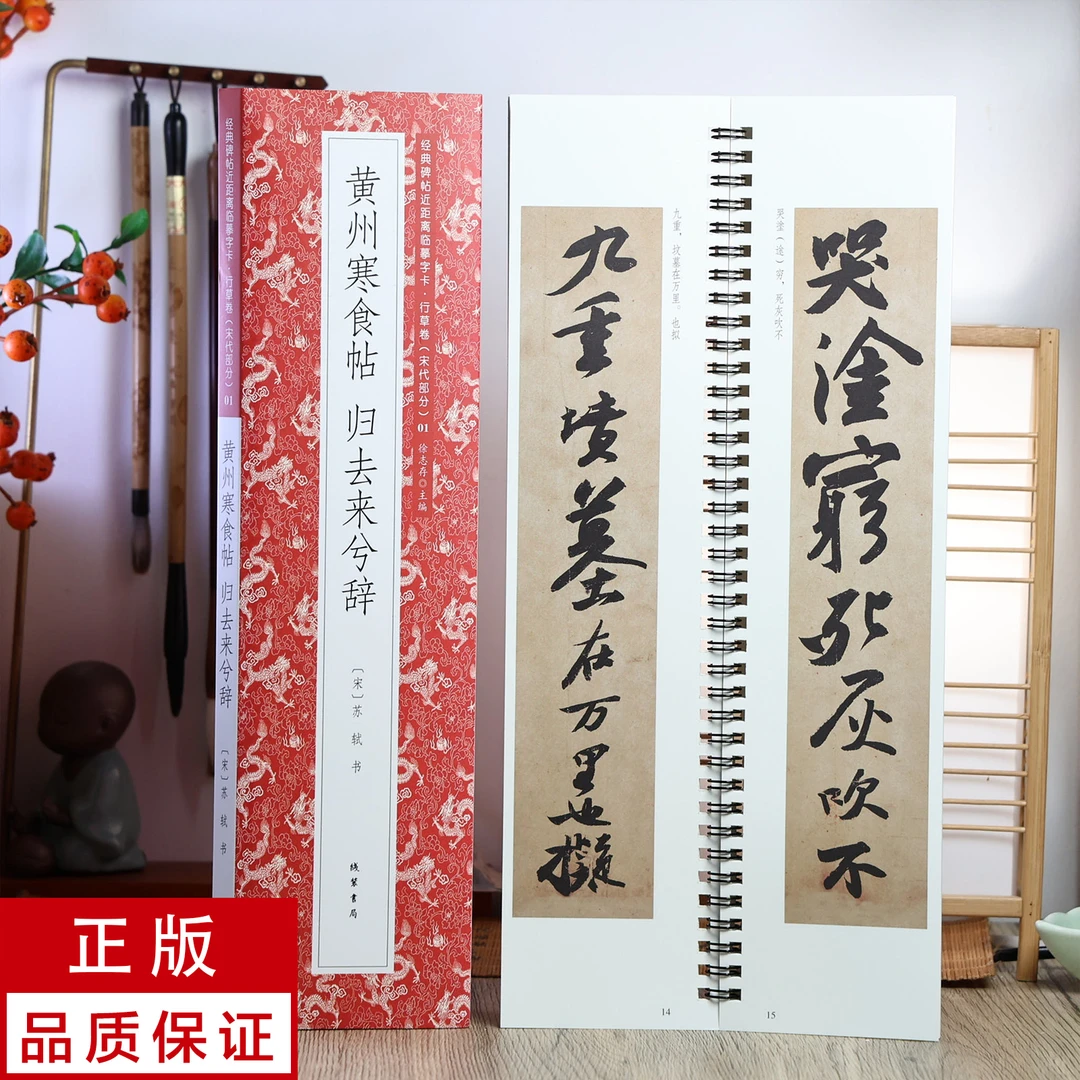 经典碑帖近距离临摹字卡·行草卷（宋代部分）01
黄州寒食帖 归去来兮辞
〔宋〕苏轼 书
经典碑帖近距离临摹字卡·行草卷（宋代部分）01 徐志存◎主编
黄州寒食帖 归去来兮辞
〔宋〕苏轼 书
线装书局
九重，坟墓在万里。也拟
九重坟墓在万里也擬
14
哭塗窮死灰吹不
哭塗（途）穷，死灰吹不
15
正版
品质保证